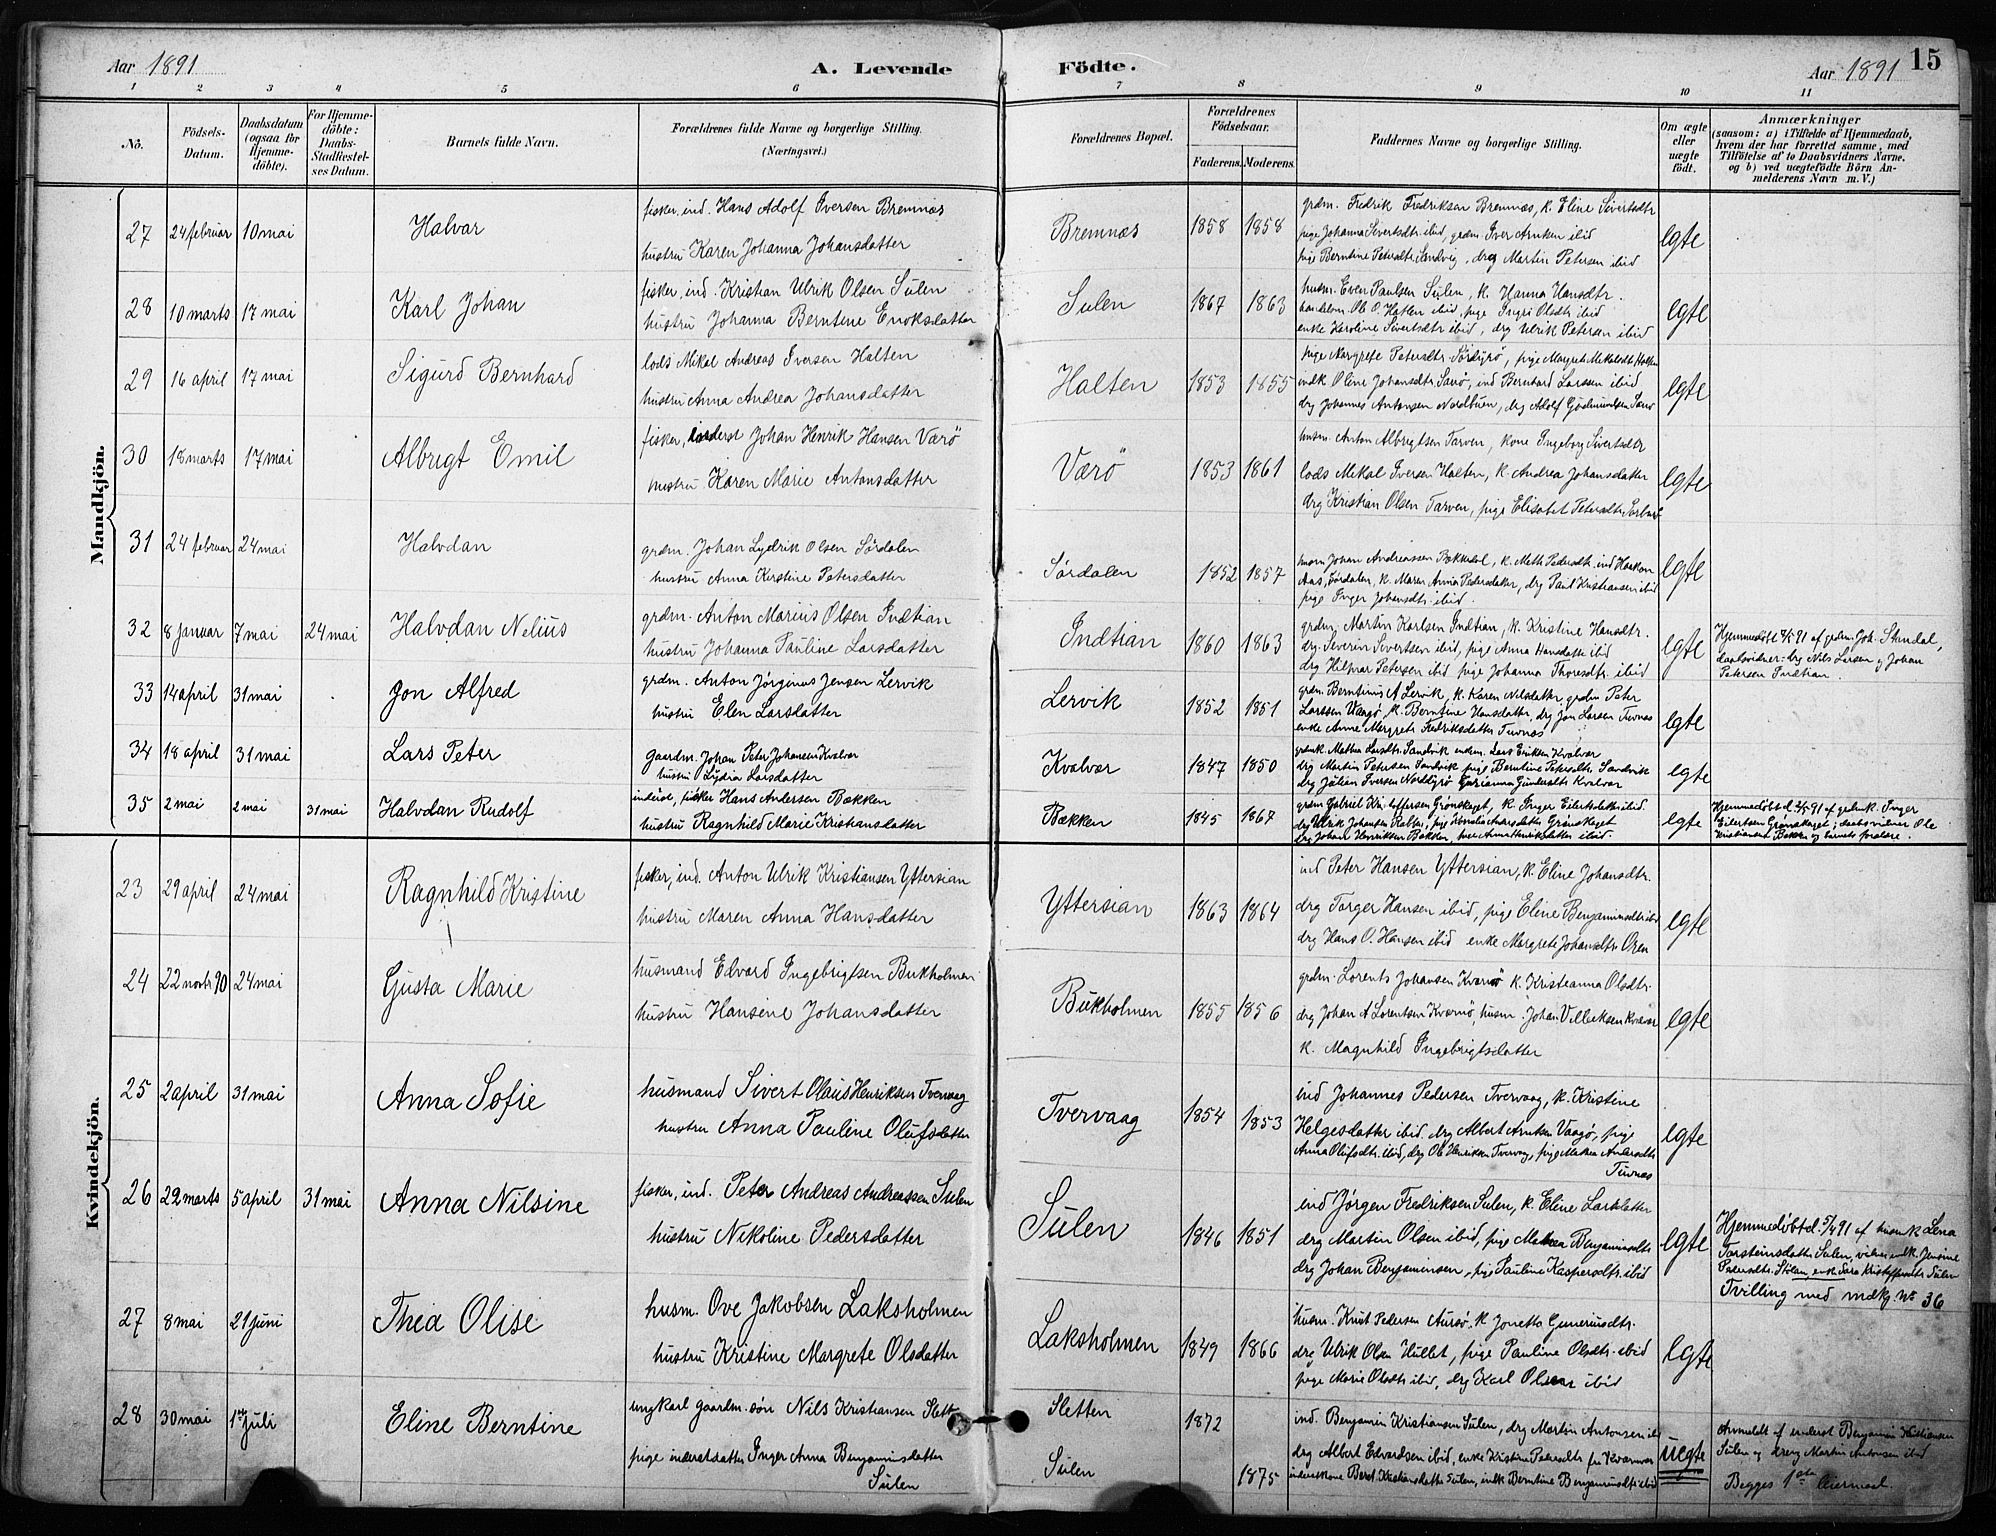 Aar 1891 A. Levende Födte. Aar 1891 15
1 2 3 4 5 6 7 8 9 10 11
Nò. Födsels-Datum. Daabsdatum (ogsaa for Hjemmedöbte). For Hjemmedöbte: Daabs-Stadfæstelses Datum. Barnets fulde Navn. Forældrenes fulde Navne og borgerlige Stilling. (Næringsvei.) Forældrenes Bopæl. Forældrenes Födselsaar. Faderens. Moderens. Faddernes Navne og borgerlige Stilling. Om ægte eller uægte födt. Anmærkninger (saasom: a) i Tilfælde af Hjemmedaab, hvem der har forrettet samme, med Tilföielse af to Daabsvidners Navne, og b) ved uægtefödte Börn Anmelderens Navn m. V.)
Mandkjön.
fisker, ind. Hans Adolf Iversen Bremnæs grdm. Fredrik Fredriksen Bremnæs, k. Eline Sivertsdtr
27 24 februar 10 mai Halvar Bremnæs 1858 1858 pige Johanna Sivertsdtr. ibid, grdm. Iver Arntsen ibid egte
hustru Karen Johanna Johansdatter pige Berntine Petersdtr. Sandvig, drg Martin Petersen ibid
fisker, ind. Kristian Ulrik Olsen Sulen husm. Even Paulsen Sulen, k. Hanna Hansdtr.
28 10 marts 17 mai Karl Johan Sulen 1867 1863 Ole O. Halten ibid, pige Ingri Olsdtr ibid egte
hustru Johanna Berntine Enoksdatter enke Karoline Sivertsdtr ibid, drg Ulrik Petersen ibid
lods Mikal Andreas Iversen Halten pige Margrete Petersdtr. Sørdyrø, pige Margrete Mikalsdtr Halten
29 16 april 17 mai Sigurd Bernhard Halten 1853 1855 indk Oline Johansdtr. Sanø, ind Bernhard Larssen ibid egte
hustru Anna Andrea Johansdatter drg Johannes Antonsen Nordbuen, drg Adolf Gudmundsen Sanø
fisker, inderst Johan Henrik Hansen Værø husm. Anton Albrigtsen Tarven, kone Ingeborg Sivertsdtr
30 18 marts 17 mai Albrigt Emil Værø 1853 1861 lods Mikal Iversen Halten, k. Andrea Johansdatter egte
hustru Karen Marie Antonsdatter drg Kristian Olsen Tarven, pige Elisabet Petersdtr
31 24 februar 24 mai Halvdan grdm. Johan Lydrik Olsen Sørdalen husm Johan Andreassen Bækkedal, k. Meth. Pedersdtr. ind Haakon
hustru Anna Kirstine Petersdatter Sørdalen 1852 1857 Aas, Sørdalen, k. Maren Anna Pedersdatter, drg Paul Kristiansen ibid egte
pige Inger Johansdtr. ibid.
32 8 januar 7 mai 24 mai Halvdan Nelius grdm. Anton Marius Olsen Indtian grdm. Martin Karlsen Indtian, k. Kristine Hansdtr. Hjemmedøbt 7/5 91 af grdm. Joh. Stendal,
hustru Johanna Pauline Larsdatter Indtian 1860 1863 drg. Severin Sivertsen ibid, pige Anna Hansdatter ibid egte daabsvidner: drg Nils Larsen og Johan
drg Hilmar Petersen ibid pige Johanna Thoresdtr. ibid Petersen Indtian.
33 14 april 31 mai Jon Alfred grdm. Anton Jørginus Jensen Lervik grdm. Berntinus A Lervik, k. Karen Nilsdatter, grdm Peter
hustru Elen Larsdatter Lervik 1852 1851 Larssen Vaagø, k. Berntine Hansdatter, drg Jon Larsen Turnæs egte
enke Anne Margrete Fredriksdatter Turnæs
34 18 april 31 mai Lars Peter Gaardm. Johan Peter Johansen Kvalvær gdmk. Mathea Larsdtr. Sandvik enkem. Lars Eriksen Kvalvær
hustru Lydia Larsdatter Kvalvær 1847 1850 drg Martin Petersen Sandvik pige Berntine Petersdtr. Sandvik egte
drg Julian Iversen Norddyrø Gurianna Gundersdtr Kvalvær
35 2 mai 2 mai 31 mai Halvdan Rudolf inderst, fisker Hans Andersen Bækken grdm Gabriel Kristoffersen Grønskaget, k. Inger Eilertsdatter ibid Hjemmedøbt d. 2/5 91 af Inger
hustru Ragnhild Marie Kristiansdatter Bækken 1845 1867 drg Ulrik Johansen pige Andrea datter Grønskaget egte Eilertsen Grønskaget; daabsvidner Ole
drg Johan Henriksen Bækken, pige Anna Henriksdatter ibid. Kristiansen Bækken og barnets forældre.
Kvindekjön.
fisker, ind. Anton Ulrik Kristiansen Yttersian ind Peter Hansen Yttersian, k. Eline Johansdtr.
23 29 april 24 mai Ragnhild Kristine Yttersian 1863 1864 drg Torger Hansen ibid, pige Eline Benjaminsdtr ibid egte
hustru Maren Anna Hansdatter drg Hans O. Hansen ibid enke Margrete Johansdtr. Oren
24 22 novbr 90 24 mai Gusta Marie husmand Edvard Ingebrigtsen Bukholmen grdm. Lorents Johansen Kvernø k. Kristianna Olsdtr.
hustru Hansine Johansdatter Bukholmen 1855 1856 drg Johan A Lorentsen Kvernø, husm. Johan Villeksen Kvalvær egte
k. Magnhild Ingebrigtsdatter
25 2 april 31 mai Anna Sofie husmand Sivert Olaus Henriksen Tvervaag ind Johannes Pedersen Tvervaag, k. Kristine
hustru Anna Pauline Olufsdatter Tvervaag 1854 1853 Helgesdatter ibid. drg Albert Arntsen Vaagø, pige egte
Anna Olufsdtr. ibid, drg Ole Henriksen Tvervaag, pige Mathea Andersdtr
Turnæs
26 22 marts 5 april 31 mai Anna Nilsine fisker, ind. Peter Andreas Andreassen Sulen ind Jørgen Fredriksen Sulen, k. Eline Larsdatter Hjemmedøbt d. 5/4 91 af husmk Lena
hustru Nikoline Pedersdatter Sulen 1846 1851 drg Martin Olsen ibid, pige Mathea Benjaminsdtr egte Torsteinsdatter Sulen, vidner indk. Jensine
drg Johan Benjaminsen, pige Pauline Kaspersdtr. ibid Petersdtr. Sulen, enke Sara Kristoffersdtr. Sulen
Tvilling med mdkj. No 36
27 8 mai 21 juni Thea Olise husm. Ove Jakobsen Laksholmen husm. Knut Pedersen Aursø, k Jonetta Gunneriusdtr.
hustru Kristine Margrete Olsdatter Laksholmen 1849 1866 drg Ulrik Olsen Hullet, pige Pauline Olsdtr. ibid egte
pige Marie Olsdtr. ibid, drg Karl Olsen ibid
28 30 mai 1ste juli Eline Berntine ungkarl gaardm. søn Nils Kristiansen Slett Sletten 1872 ind. Benjamin Kristiansen Sulen, drg Martin Antonsen ibid Anmeldt af inderst Benjamin Kristiansen
pige inderstdatter Inger Anna Benjaminsdatter drg Albert Edvardsen ibid, enke Kristine Petersdtr fra Kvernvær uegte Sulen og dreng Martin Antonsen ibid
Sulen Sulen 1875 inderstkone Beret Kristiansdatter Sulen, indk Berntine Benjaminsdtr ibid Begges 1ste leiermaal.